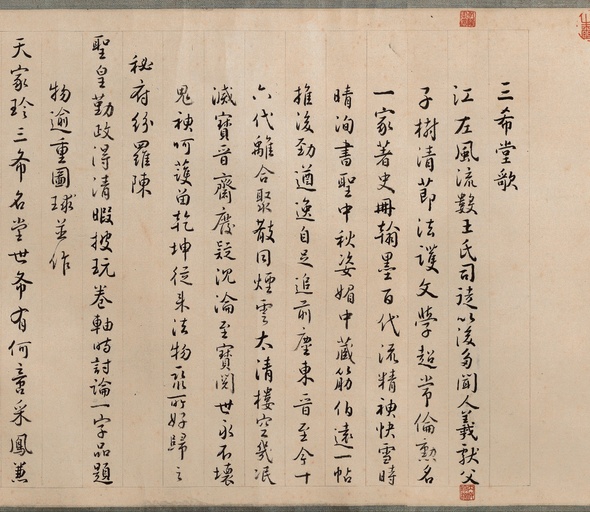 三希堂歌
江左風流數王氏司徒以後多聞人羲獻父
子樹清節法護文學超常倫勳名
一家著史冊翰墨百代流精神快雪時
晴洵書聖中秋姿媚中藏筋伯遠一帖
推後勁遒逸自足追前塵東晉至今十
六代離合聚散同煙雲太清樓空幾泯
滅寶晉齋廢疑沉淪至寶閱世永不壞
鬼神呵護留乾坤從來法物聚所好歸之
秘府紛羅陳
聖皇勤政得清暇披玩卷軸時討論一字品題
物逾重圖球並作
天家珍三希名堂世希有何啻采鳳兼